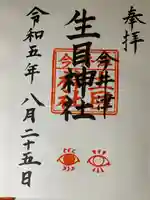 奉拝
今井津
生目神社
令和五年 八月二十五日